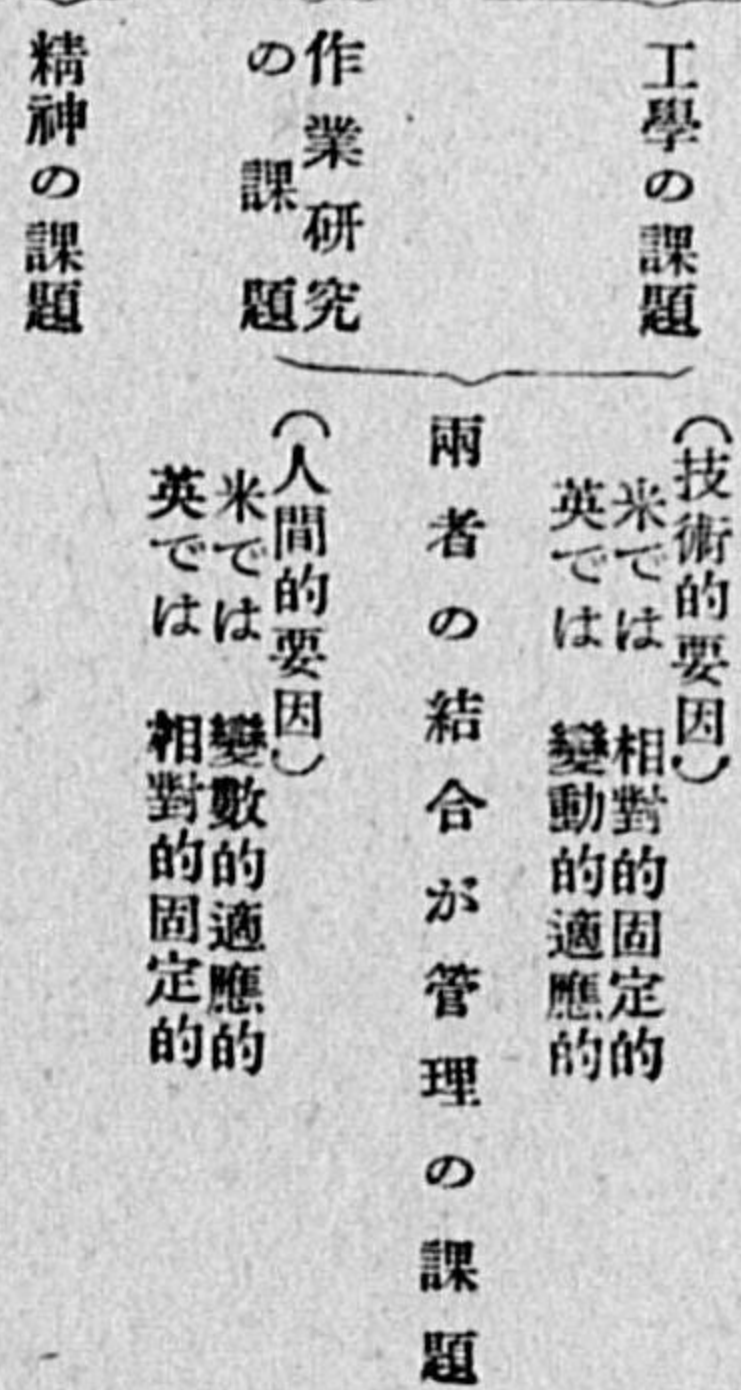 工學の課題
(技術的要因)
米では 相對的固定的
英では 變動的適應的
兩者の結合が管理の課題
作業研究
の課題
(人間的要因)
米では 變數的適應的
英では 相對的固定的
精神の課題